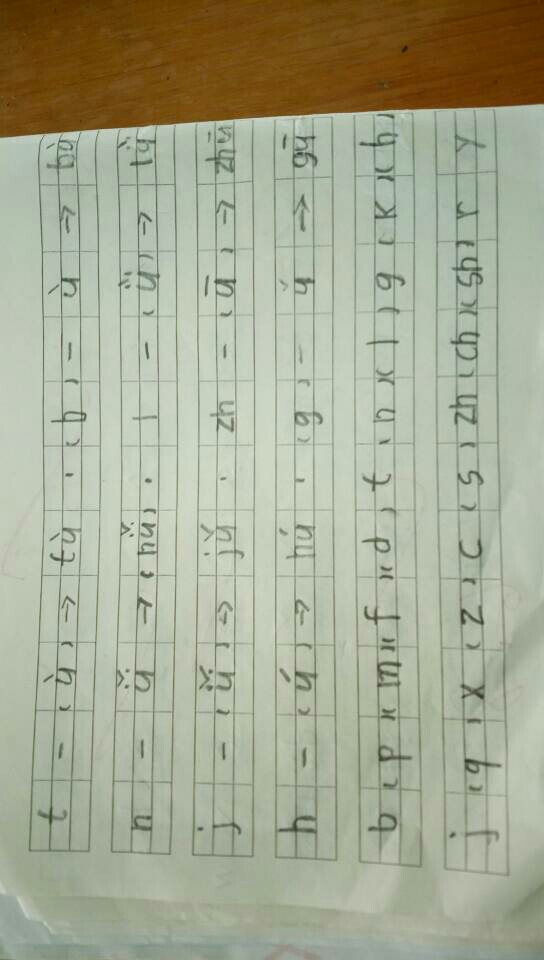 t - ǔ → tǔ , b - ù → bù
n - ǚ → nǚ . l - ǜ → lǜ
j - ǘ → jú . zh - ū → zhū
h - ú → hú . g - → gū
b p m f d t n l g k h
j q x z c s zh ch sh r y